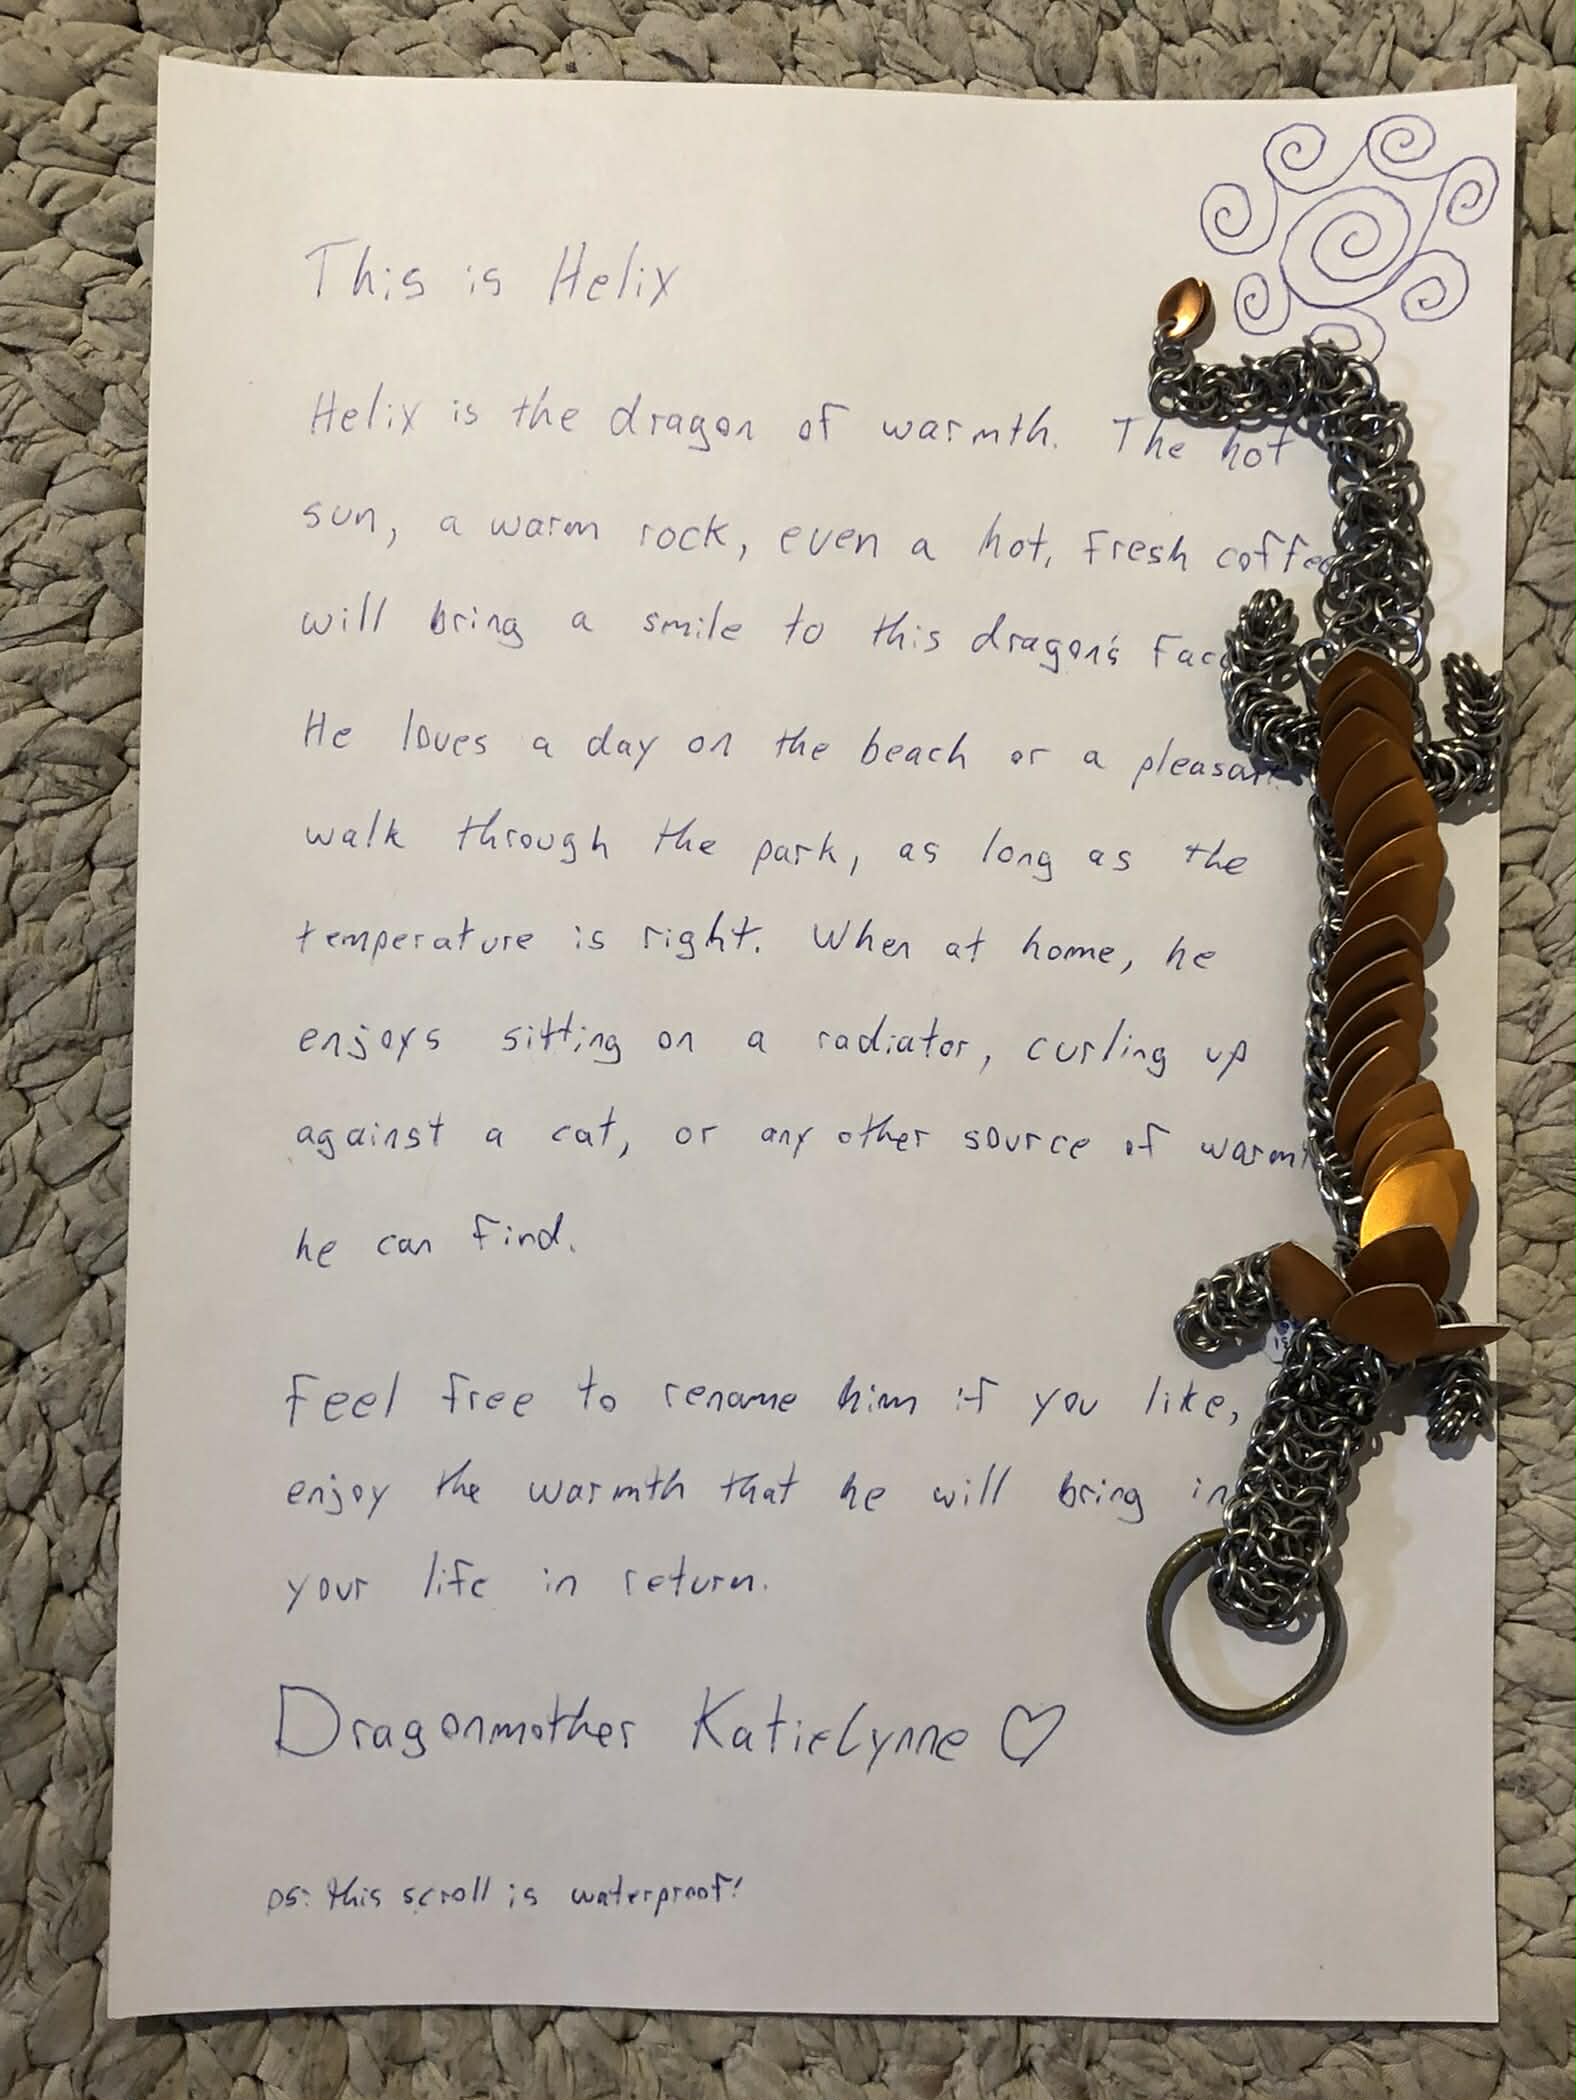 This is Helix
Helix is the dragon of warmth. The hot
sun, a warm rock, even a hot, fresh coffee
will bring a smile to this dragon's face
He loves a day on the beach or a pleasant
walk through the park, as long as the
temperature is right. When at home, he
enjoys sitting on a radiator, curling up
against a cat, or any other source of warmth
he can find.
Feel free to rename him if you like,
enjoy the warmth that he will bring in
your life in return.
Dragonmother KatieLynne ♡
PS: this scroll is waterproof!